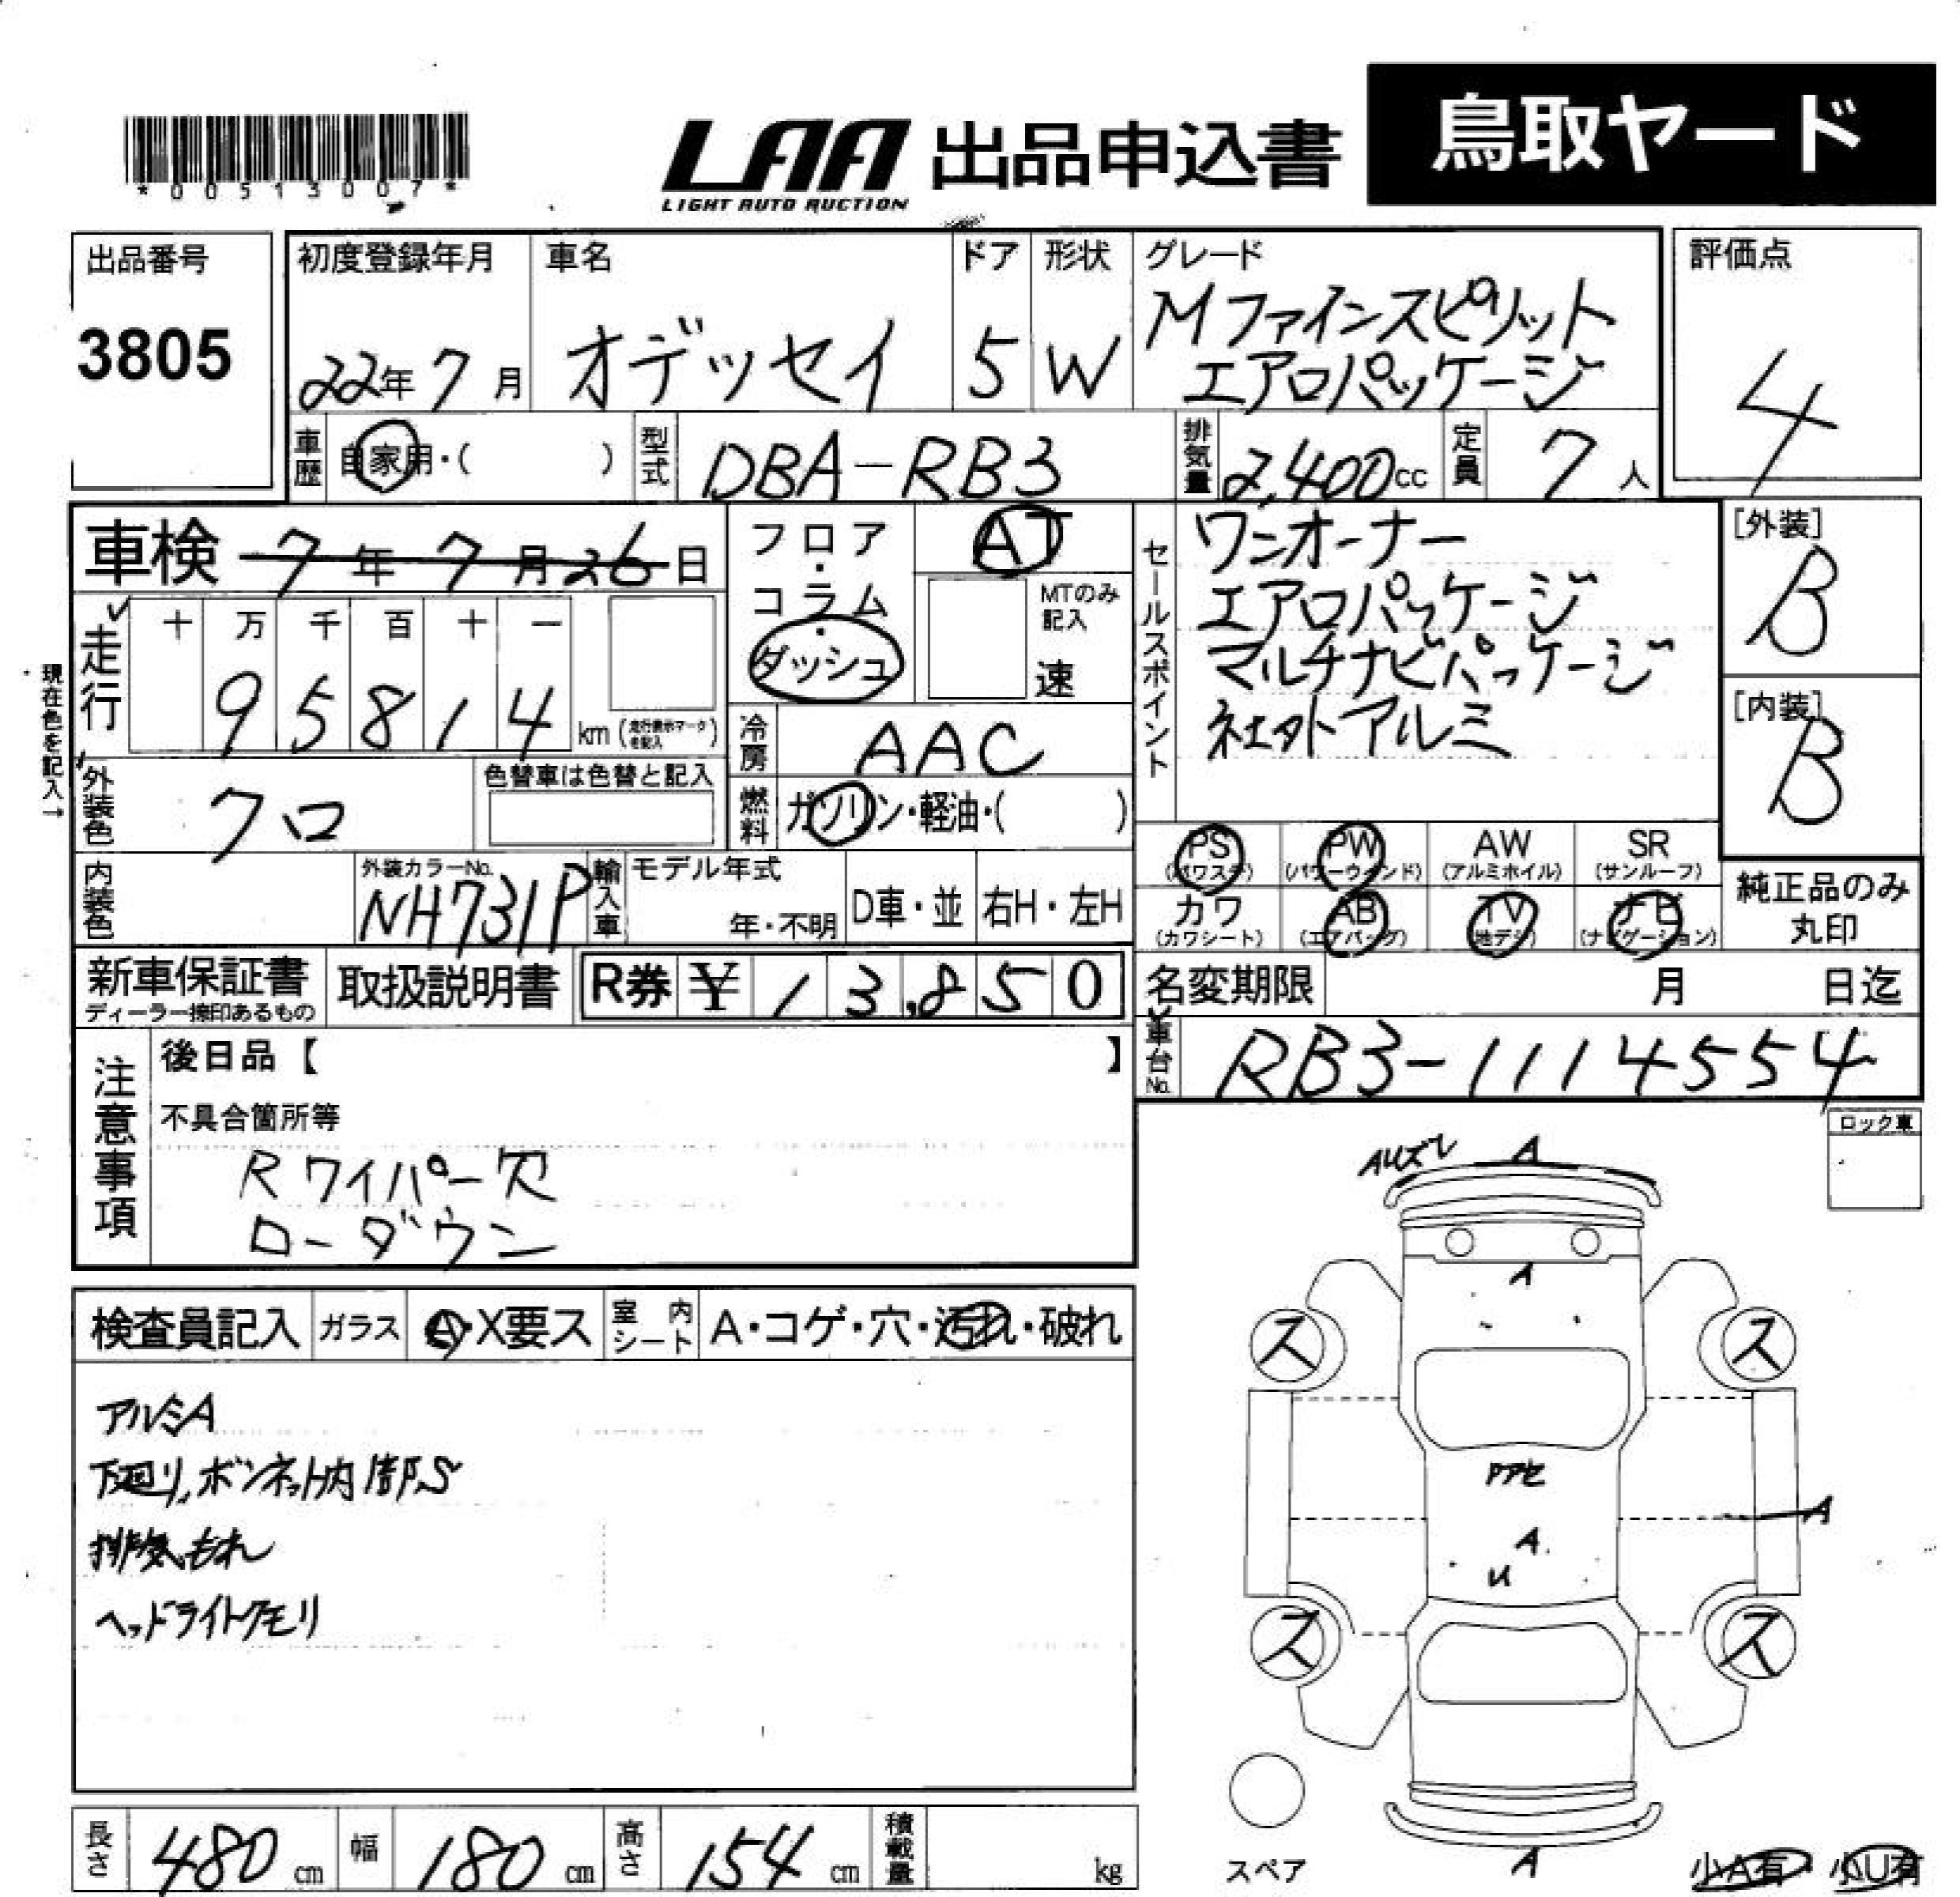 *00513007*
LAA
LIGHT AUTO AUCTION
出品申込書
鳥取ヤード
出品番号
3805
初度登録年月
22年7月
車名
オデッセイ
ドア
5
形状
W
グレード
Mファインスピリット
エアロパッケージ
評価点
4
車歴
自家用・( )
型式
DBA-RB3
排気量
2,400cc
定員
7人
車検
7年7月26日
フロア・コラム・ダッシュ
AT
MTのみ記入
速
セールスポイント
ワンオーナー
エアロパッケージ
マルチナビパッケージ
社外アルミ
[外装]
B
[内装]
B
現在色を記入→
走行
十 万 千 百 十 一
95814
km(走行表示マークを記入)
冷房
AAC
外装色
クロ
色替車は色替と記入
燃料
ガソリン・軽油・( )
内装色
外装カラーNo.
NH731P
輸入車
モデル年式
年・不明
D車・並
右H・左H
PS
(パワステ)
PW
(パワーウインド)
AW
(アルミホイル)
SR
(サンルーフ)
カワ
(カワシート)
AB
(エアバッグ)
TV
(地デジ)
ナビ
(ナビゲーション)
純正品のみ
丸印
新車保証書
ディーラー捺印あるもの
取扱説明書
R券 ¥13,850
名変期限
月 日迄
車台No.
RB3-1114554
注意事項
後日品【 】
不具合箇所等
Rワイパー欠
ローダウン
ロック車
検査員記入
ガラス
A・X要ス
室内シート
A・コゲ・穴・汚れ・破れ
アルミA
下廻り、ボンネット内部S
排気もれ
ヘッドライトクモリ
AUズレ
A
A
ス
ス
アセ
A
A
U
ス
ス
スペア
A
小A有・小U有
長さ
480cm
幅
180cm
高さ
154cm
積載量
kg